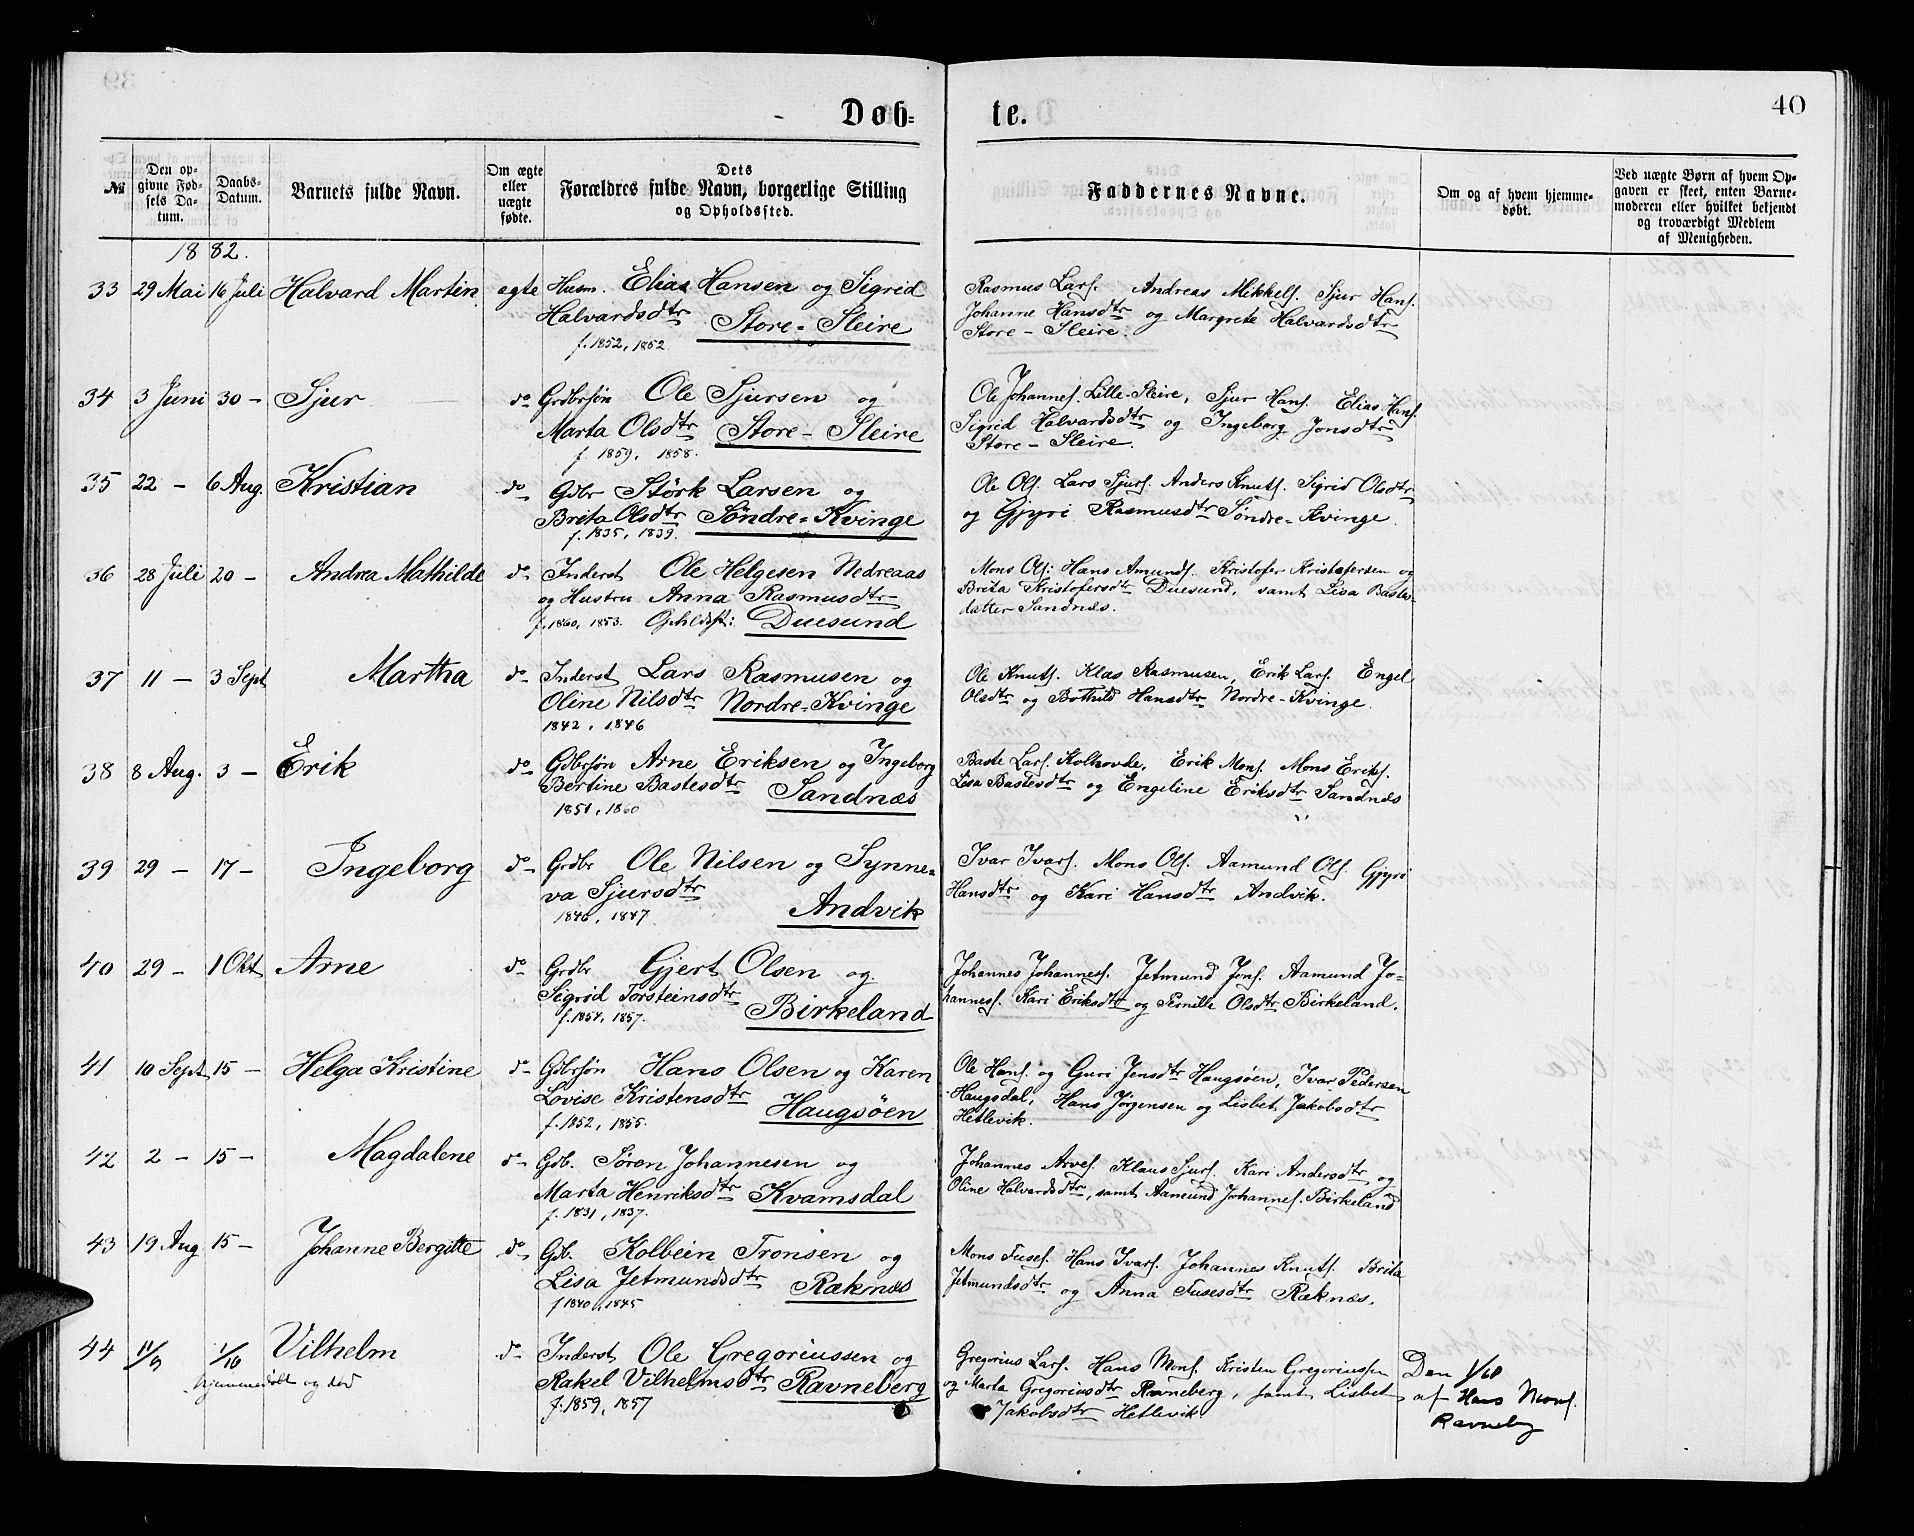 40
Døb-
te.
№
Den opgivne Fødsels Datum.
Daabs-Datum.
Barnets fulde Navn.
Om ægte eller uægte fødte.
Dets Forældres fulde Navn, borgerlige Stilling og Opholdssted.
Faddernes Navne.
Om og af hvem hjemmedøbt.
Ved uægte Børn af hvem Opgaven er skeet, enten Barnemoderen eller hvilket bekjendt og troværdigt Medlem af Menigheden.
1882.
33 29 Mai 16 Juli Halvard Martin. egte Husm. Elias Hansen og Sigrid
Halvardsdtr Store-Sleire
f. 1852, 1852.
Rasmus Lars. Andreas Mikkels. Sjur Hans.
Johanne Hansdtr og Margrete Halvardsdtr
Store-Sleire.
34 3 Juni 30 - Sjur do Grdbrsøn Ole Sjursen og
Marta Olsdtr Store-Sleire
f. 1859, 1858.
Ole Johannes. Lille-Sleire, Sjur Hans. Elias Hans.
Sigrid Halvardsdtr og Ingeborg Jonsdtr
Store-Sleire.
35 22 - 6 Aug. Kristian do Gdbr Størk Larsen og
Brita Olsdtr Søndre-Kvinge
f. 1835, 1839.
Ole Ols. Lars Sjurs. Anders Knuts. Sigrid Olsdtr
og Gjyri Rasmusdtr Søndre-Kvinge.
36 28 Juli 20 - Andrea Mathilde do Inderst Ole Helgesen Nedreaas
og Hustru Anna Rasmusdtr
f. 1860, 1853. Ophldsst: Duesund
Mons Ols: Hans Amunds. Kristofer Kristofersen og
Brita Kristofersdtr Duesund, samt Lisa Bastes-
datter Sandnæs.
37 11 - 3 Sept Martha do Inderst Lars Rasmusen og
Oline Nilsdtr Nordre-Kvinge
1842, 1846
Ole Knuts. Klas Rasmusen, Erik Lars. Engel
Olsdtr og Bothild Hansdtr Nordre-Kvinge.
38 8 Aug. 3 - Erik do Gdbrsøn Arne Eriksen og Ingeborg
Bertine Bastesdtr Sandnæs
1851, 1860
Baste Lars. Kolhovde, Erik Mons. Mons Eriks.
Lisa Bastesdtr og Engeline Eriksdtr Sandnæs
39 29 - 17 - Ingeborg do Grdbr Ole Nilsen og Synne-
va Sjursdtr Andvik
1846, 1847.
Ivar Ivars. Mons Ols. Aamund Ols. Gjyri
Hansdtr og Kari Hansdtr Andvik.
40 29 - 1 Okt Arne do Grdbr Gjert Olsen og
Sigrid Torsteinsdtr Birkeland
f. 1854, 1857.
Johannes Johanness. Jetmund Jons. Aamund Jo-
hanness. Kari Eriksdtr og Pernille Olsdtr Birkeland.
41 10 Sept 15 - Helga Kristine do Gdbrsøn Hans Olsen og Karen
Lovise Kristensdtr Haugsøen
f. 1852, 1855.
Ole Hans. og Guri Jensdtr Haugsøen, Ivar Pedersen
Haugsdal, Hans Jørgensen og Lisbet Jakobsdtr
Hetlevik.
42 2 - 15 - Magdalene do Gdb. Søren Johannesen og
Marta Henriksdtr Kvamsdal
f. 1831, 1837.
Johannes Arves. Klaus Sjurs. Kari Andersdtr og
Oline Halvardsdtr, samt Aamund Johannes. Birkeland
43 19 Aug 15 - Johanne Bergitte do Gdb. Kolbein Tronsen og
Lisa Jetmundsdtr Ræknæs
f 1840, 1845
Mons Fuses. Hans Ivars. Johannes Knuts. Brita
Jetmundsdtr og Anna Fusesdtr Ræknæs.
44 11/9 1/10 Vilhelm do Inderst Ole Gregoriussen og
hjemmedøbt og død
Rakel Vilhelmsdtr Ravneberg
f. 1859, 1857
Gregorius Lars. Hans Mons. Kristen Gregoriussen
og Marta Gregoriusdtr Ravneberg, samt Lisbet
Jakobsdtr Hetlevik
Den
af Hans Mons.
Ravneberg